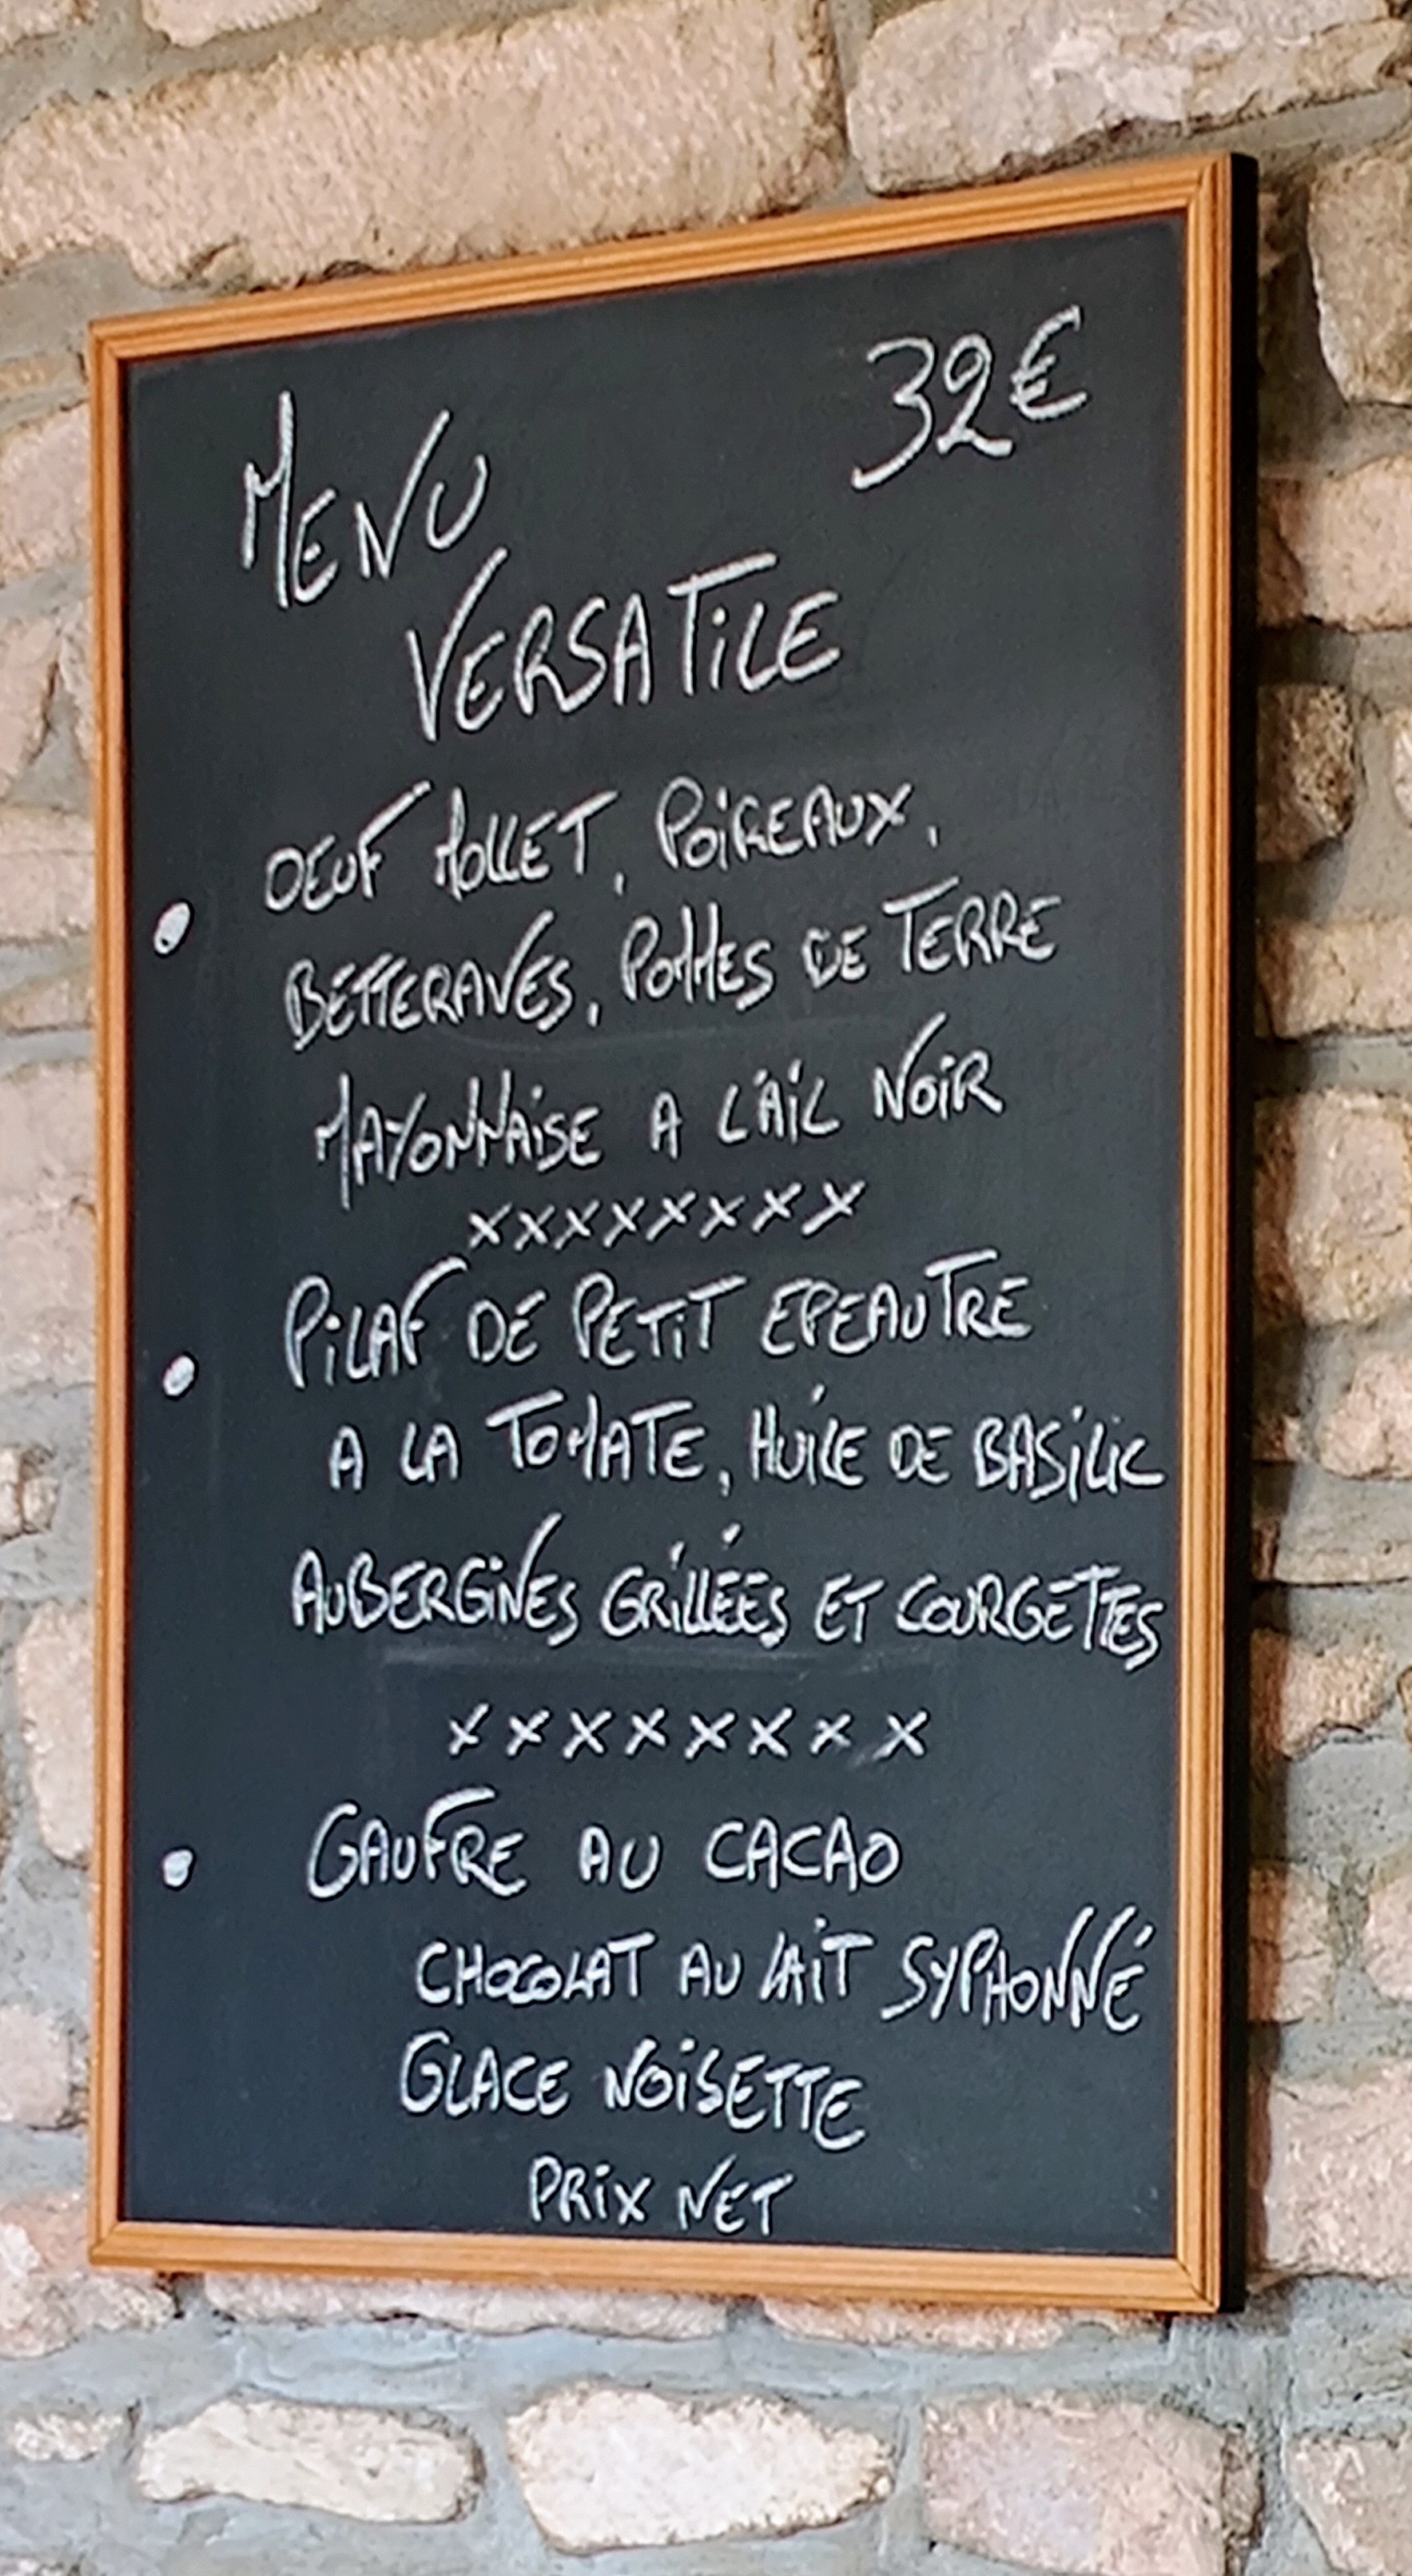 32€
MENU
VERSATILE
OEUF MOLLET, POIREAUX,
BETTERAVES, POMMES DE TERRE
MAYONNAISE A L'AIL NOIR
xxxxxxxx
PILAF DE PETIT EPEAUTRE
A LA TOMATE, HUILE DE BASILIC
AUBERGINES GRILLÉES ET COURGETTES
xxxxxxxx
GAUFRE AU CACAO
CHOCOLAT AU LAIT SYPHONNÉ
GLACE NOISETTE
PRIX NET